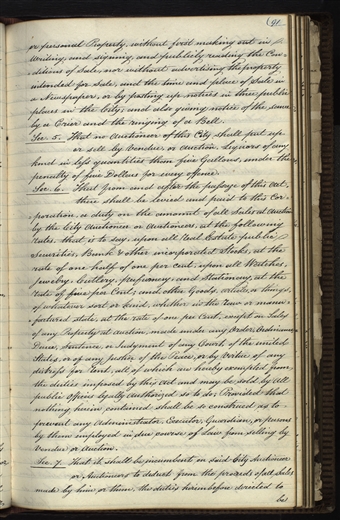 91
or personal Property, without first making out in
writing, and signing, and publickly reading the Con-
ditions of Sale, nor without advertising the property
intended for Sale, and the time and place of Sale in
a Newspaper, or by posting up notices in three public
places in the City, and also giving notice of the same
by a Crier and the ringing of a Bell.
Sec. 5. That no Auctioneer of this City shall put up
or sell by Vendue or Auction, Liquors of any
kind in less quantities than five Gallons, under the
penalty of five Dollars for every offence.
Sec. 6. That from and after the passage of this Act,
there shall be levied and paid to this Cor-
poration, a duty on the amount of all Sales at Auction
by the City Auctioneer or Auctioneers, at the following
rates, that is to say, upon all Real Estate public
Securities, Bank & other incorporated Stocks, at the
rate of one half of one per cent, upon all Watches,
Jewelry, Cutlery, perfumery, and Stationery, at the
rate of five per Cent; and other Goods, articles, or things,
of whatever sort or kind, whether in the raw or manu-
factured state, at the rate of one per Cent, except on Sales
of any Property at auction, made under any Order, Ordinance,
Decree, Sentence, or Judgment of any Court of the united
States, or of any Justice of the Peace, or by virtue of any
distress for Rent, all of which are hereby exempted from
the duties imposed by this Act and may be sold by all
public officers legally Authorized so to do; Provided that
nothing herein contained shall be so construed as to
prevent any Administrator, Executor, Guardian, or persons
by them employed in due course of Law from selling by
Vendue or Auction.
Sec. 7. That it shall be incumbent on said City Auctioneer
or Auctioneers to deduct from the proceeds of all Sales
made by him or them, the duties hereinbefore directed to
be